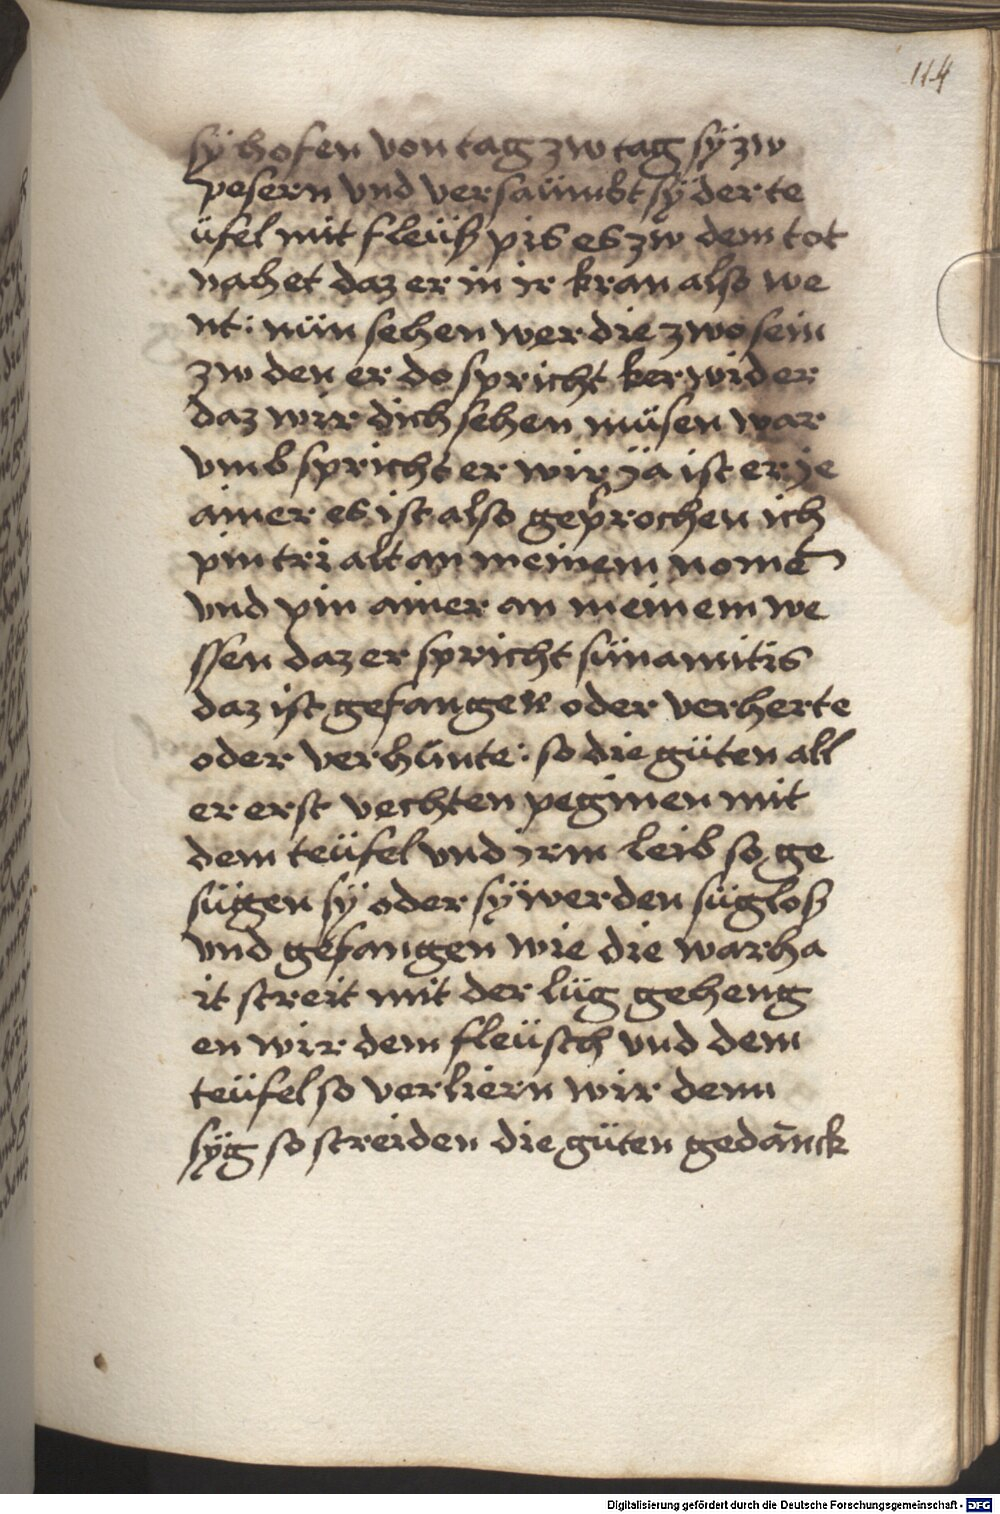 114
sÿ hofen von tag zw tag sÿ zw
pesern vnd versaümbt sÿ der te
üfel mit fleüß pis es zw dem tot
nahet daz er in ir kran also we
nt: nün sehen wer die zwo sein
zw den er do spricht ker wider
daz wir dich sehen müsen war
vmb spricht er wir ja ist er je
ainer es ist also geprochen ich
pin tri alt an meinem nomē
vnd pin ainer an meinem we
ssen daz er spricht sünamitis
daz ist gefangen oder verherte
oder verhünte: so die güten all
er erst vechten peginen mit
dem teüfel vnd irm leib so ge
sügen sÿ oder sÿ werden sügloß
vnd gefangen wie die warha
it streit mit der lüg geheng
en wir dem fleüsch vnd dem
teüfel so verliern wir denn
sÿg so streiden die güten gedānck
Digitalisierung gefördert durch die Deutsche Forschungsgemeinschaft - DFG